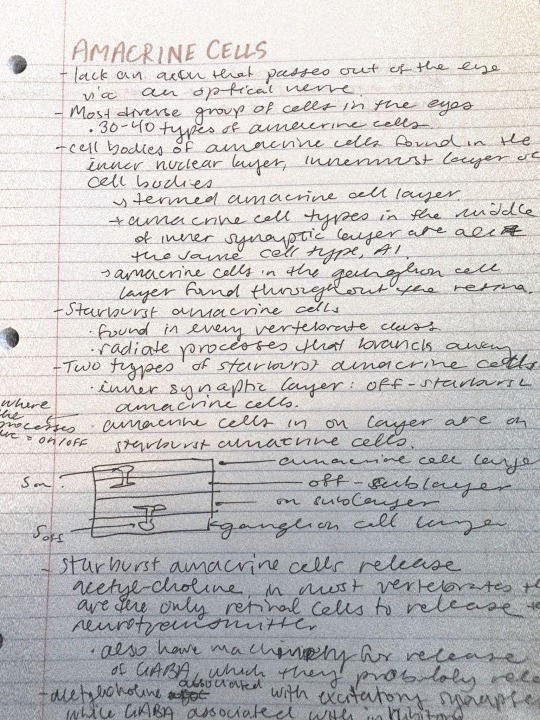 AMACRINE CELLS
- lack an axon that passes out of the eye
via an optical nerve.
- Most diverse group of cells in the eyes
• 30-40 types of amacrine cells
- cell bodies of amacrine cells found in the
inner nuclear layer, innermost layer of
cell bodies
↳ termed amacrine cell layer
→ amacrine cell types in the middle
of inner synaptic layer are all
the same cell type, A1.
→ amacrine cells in the ganglion cell
layer found throughout the retina.
- Starburst amacrine cells
• found in every vertebrate class
• radiate processes that branch away
- Two types of starburst amacrine cells
• inner synaptic layer: off-starburst
amacrine cells.
where
the
processes
are = on/off
• amacrine cells in on layer are on
starburst amacrine cells.
amacrine cell layer
Son
off-sublayer
on sublayer
Soff
ganglion cell layer
- starburst amacrine cells release
acetyl-choline, in most vertebrates
are the only retinal cells to release
neurotransmitter
• also have machinery for release
of GABA which they probably
- acetylcholine associated with excitatory
while GABA associated with